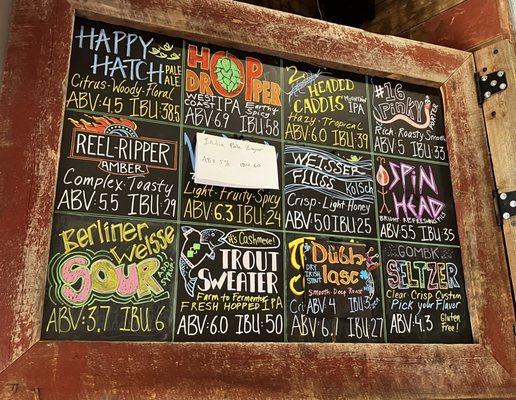 HAPPY HATCH PALE ALE
Citrus-Woody-Floral
ABV:4.5 IBU:38.5
HOP DROPPER
WEST COAST IPA
Earthy Spicy
ABV:6.9 IBU:58
2 HEADED CADDIS
MOUNTAIN IPA
Hazy-Tropical
ABV:6.0 IBU:39
#16 Pinky
Rich-Roasty
ABV:5 IBU:33
REEL-RIPPER
AMBER
Complex-Toasty
ABV:5.5 IBU:29
India Pale Lager
ABV 5% IBU 60
Light-Fruity-Spicy
ABV:6.3 IBU:24
WEISSER FLUSS KÖLSCH
Crisp-Light Honey
ABV:5.0 IBU:25
SPIN HEAD
BRIGHT REFRESHING PILS
ABV:5.5 IBU:35
Berliner Weisse
SOUR
ABV:3.7 IBU 6
It's Cashmere!
TROUT SWEATER
Farm to Fermenter
FRESH HOPPED IPA
ABV:6.0 IBU:50
Dubh Iasc
DRY IRISH STOUT
Smooth-Deep Roast
ABV 4
ABV:6.7 IBU:27
GOMBK
SELTZER
Clear Crisp System
Pick your Flavor
ABV:4.3 Gluten Free!